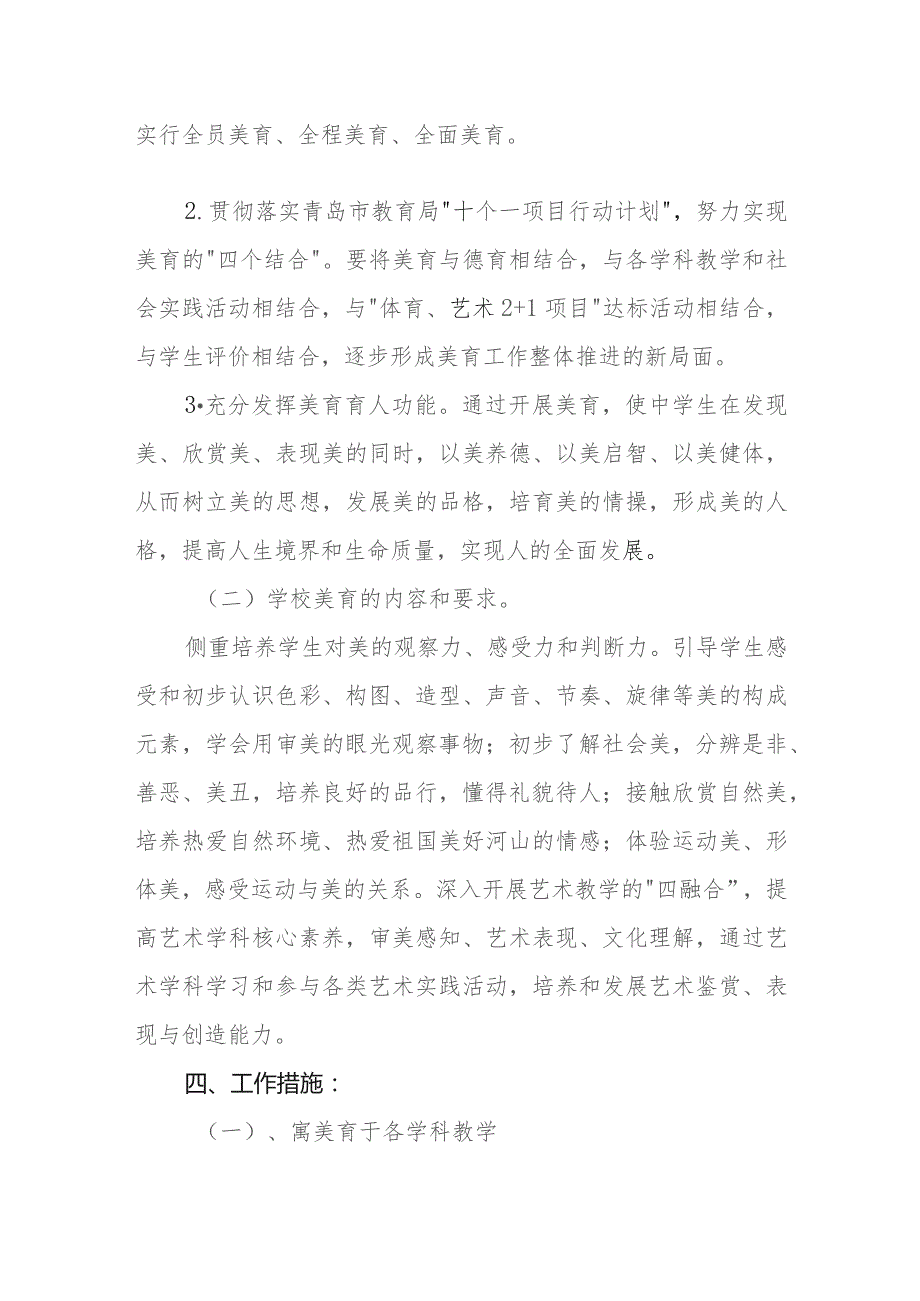 实行全员美育、全程美育、全面美育。
2.贯彻落实青岛市教育局"十个一项目行动计划"，努力实现
美育的"四个结合"。要将美育与德育相结合，与各学科教学和社
会实践活动相结合，与"体育、艺术2+1项目"达标活动相结合，
与学生评价相结合，逐步形成美育工作整体推进的新局面。
3•充分发挥美育育人功能。通过开展美育，使中学生在发现
美、欣赏美、表现美的同时，以美养德、以美启智、以美健体，
从而树立美的思想，发展美的品格，培育美的情操，形成美的人
格，提高人生境界和生命质量，实现人的全面发展。
（二）学校美育的内容和要求。
侧重培养学生对美的观察力、感受力和判断力。引导学生感
受和初步认识色彩、构图、造型、声音、节奏、旋律等美的构成
元素，学会用审美的眼光观察事物；初步了解社会美，分辨是非、
善恶、美丑，培养良好的品行，懂得礼貌待人；接触欣赏自然美，
培养热爱自然环境、热爱祖国美好河山的情感；体验运动美、形
体美，感受运动与美的关系。深入开展艺术教学的"四融合”，提
高艺术学科核心素养，审美感知、艺术表现、文化理解，通过艺
术学科学习和参与各类艺术实践活动，培养和发展艺术鉴赏、表
现与创造能力。
四、工作措施：
（一）、寓美育于各学科教学